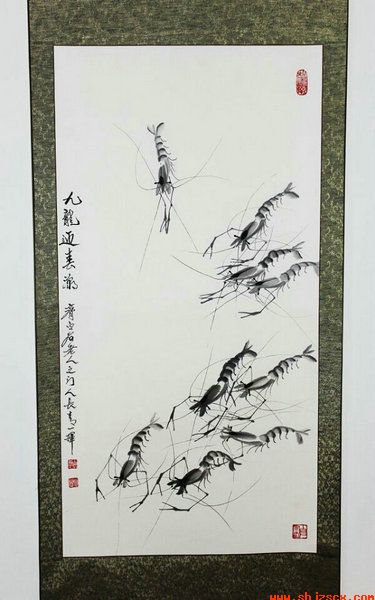 九龍迎春潮
齊白石老人之門人長青一揮
www.sbjzsck.com